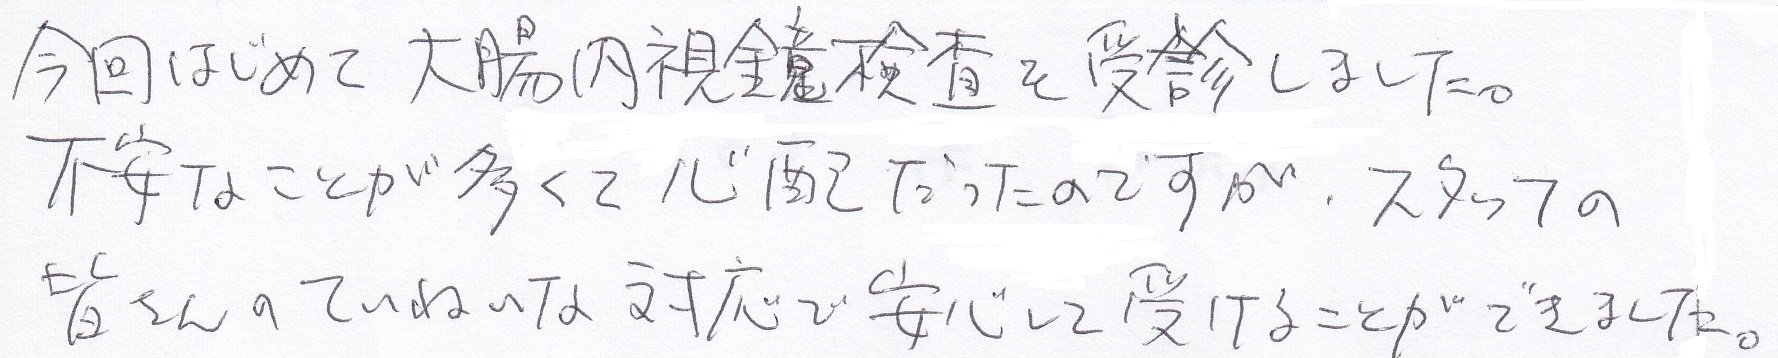 今回はじめて大腸内視鏡検査を受診しました。
不安なことが多くて心配だったのですが、スタッフの
皆さんのていねいな対応で安心して受けることができました。